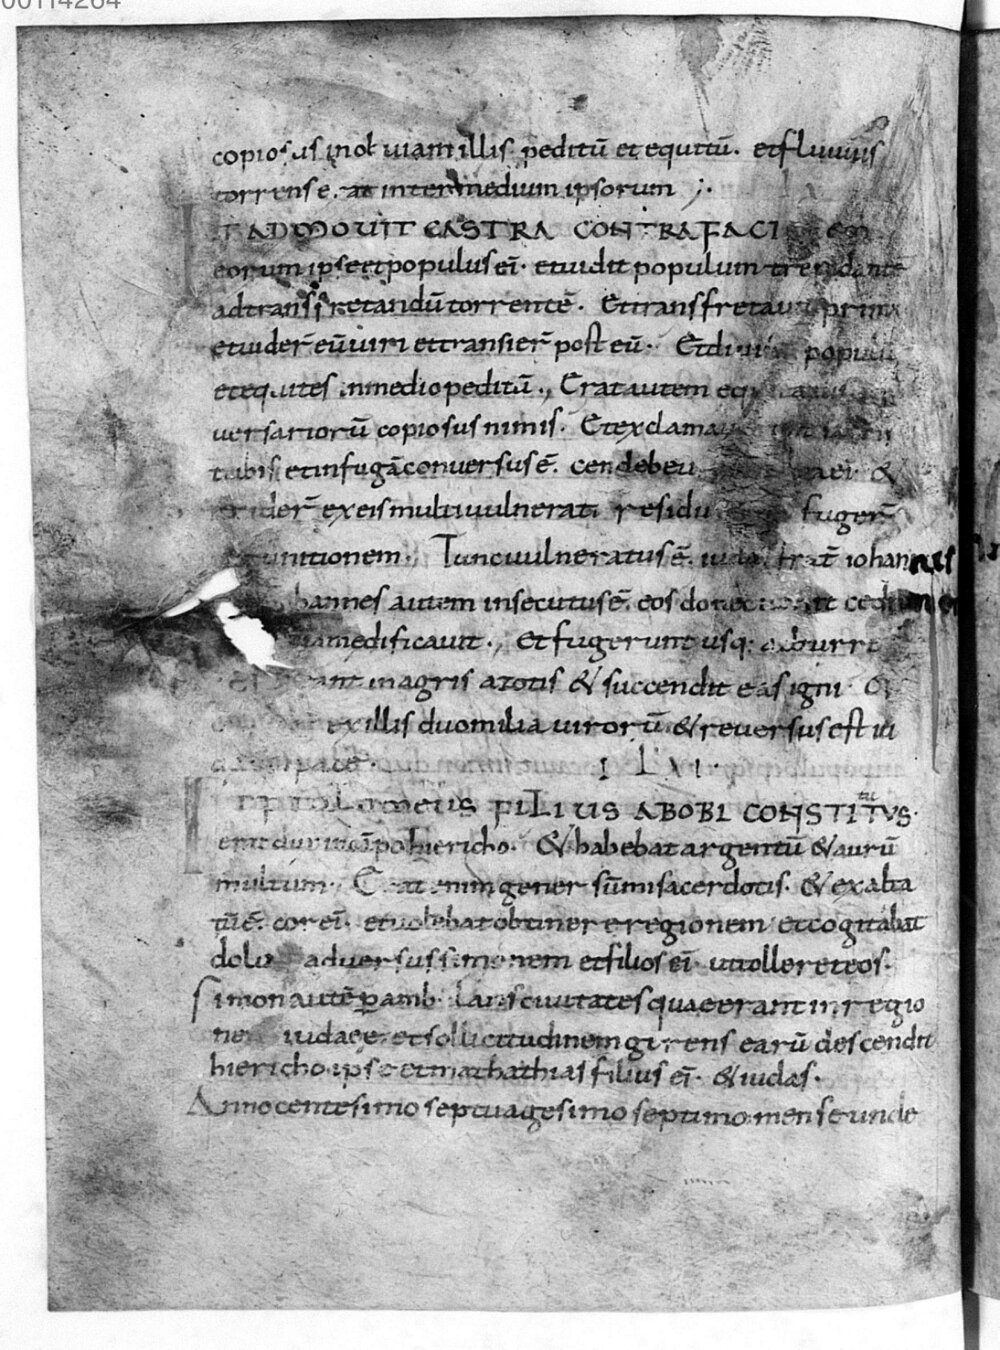 00114264
copiosus in obuiam illis peditū et equitū. et fluuius
torrens erat inter medium ipsorum ;.
ET ADMOUIT CASTRA CONTRA FACIEM
eorum ipse et populus ei. et uidit populum trepidante
ad transfretandū torrentē. Et transfretauit prim
et uider̄ eū uiri et transier̄ post eū. Et diuisit populū
et equites in medio peditū., Erat autem equitatus
uersariorū copiosus nimis. Et exclama
tubis et in fugā conuersus ē. cendebeus et
cecider̄ ex eis multi uulnerati residui fuger̄
munitionem. Tunc uulneratus ē. iudas frat̄ iohannis
hannes autem insecutus ē. eos donec cedronem
quam edificauit., et fugerunt usq: ad turre
erant in agris azotis & succendit eas igni. &
ex illis duo milia uirorū & reuersus est in
pace.
LVI.
ET PTOLOMEUS FILIUS ABOBI CONSTITUTVS.
erat dux in cāpo hiericho. & habebat argentū & aurū
multum. Erat enim gener sūmi sacerdotis. & exalta
tū ē. cor ei. et uolebat obtinere regionem et cogitabat
dolū aduersus simonem et filios ei. ut tolleret eos.
Simon autē ꝑambulans ciuitates quae erant in regio
ne iudaee et sollicitudinem gerens earū descendit
hiericho ipse et mathathias filius ei. & iudas.
Anno centesimo septuagesimo septimo mense unde